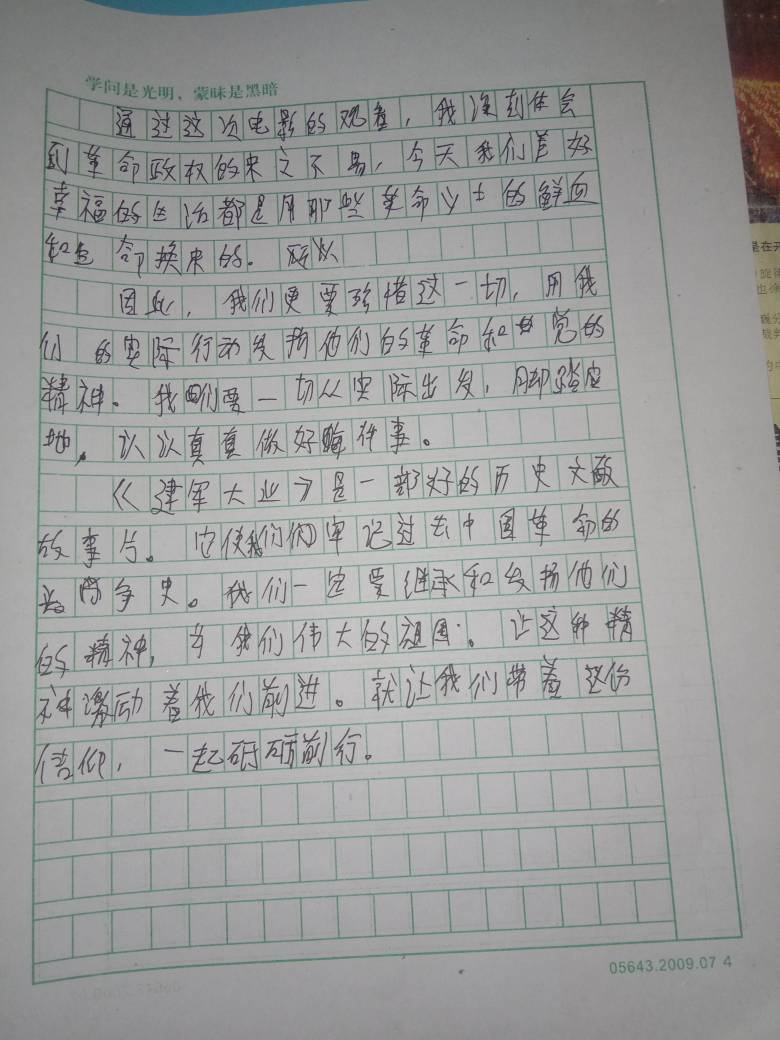 学问是光明、蒙昧是黑暗
通过这次电影的观看，我深刻体会
到革命政权的来之不易，今天我们美好
幸福的生活都是用那些革命义士的鲜血
和生命换来的。所以
因此，我们更要珍惜这一切，用我
们的实际行动发扬他们的革命和的
精神。我们要一切从实际出发，脚踏实
地，认认真真做好每件事。
《建军大业》是一部好的历史文献
故事片。它使我们牢记过去中国革命的
争史。我们一定要继承和发扬他们
的精神，我们伟大的祖国。让这种精
神激励着我们前进。就让我们带着这份
信仰，一起砥砺前行。
05643.2009.07 4
是在